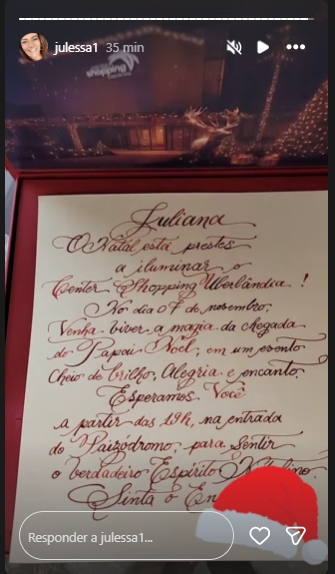 julessa1 35 min
shopping
Juliana
O Natal está prestes
a iluminar o
Center Shopping Uberlândia!
No dia 07 de novembro,
Venha viver a magia da chegada
do Papai Noel, em um evento
Cheio de brilho, Alegria e encanto.
Esperamos Você
a partir das 19h, na entrada
do Paizódromo, para Sentir
o verdadeiro Espírito Natalino.
Sinta o En
Responder a julessa1...